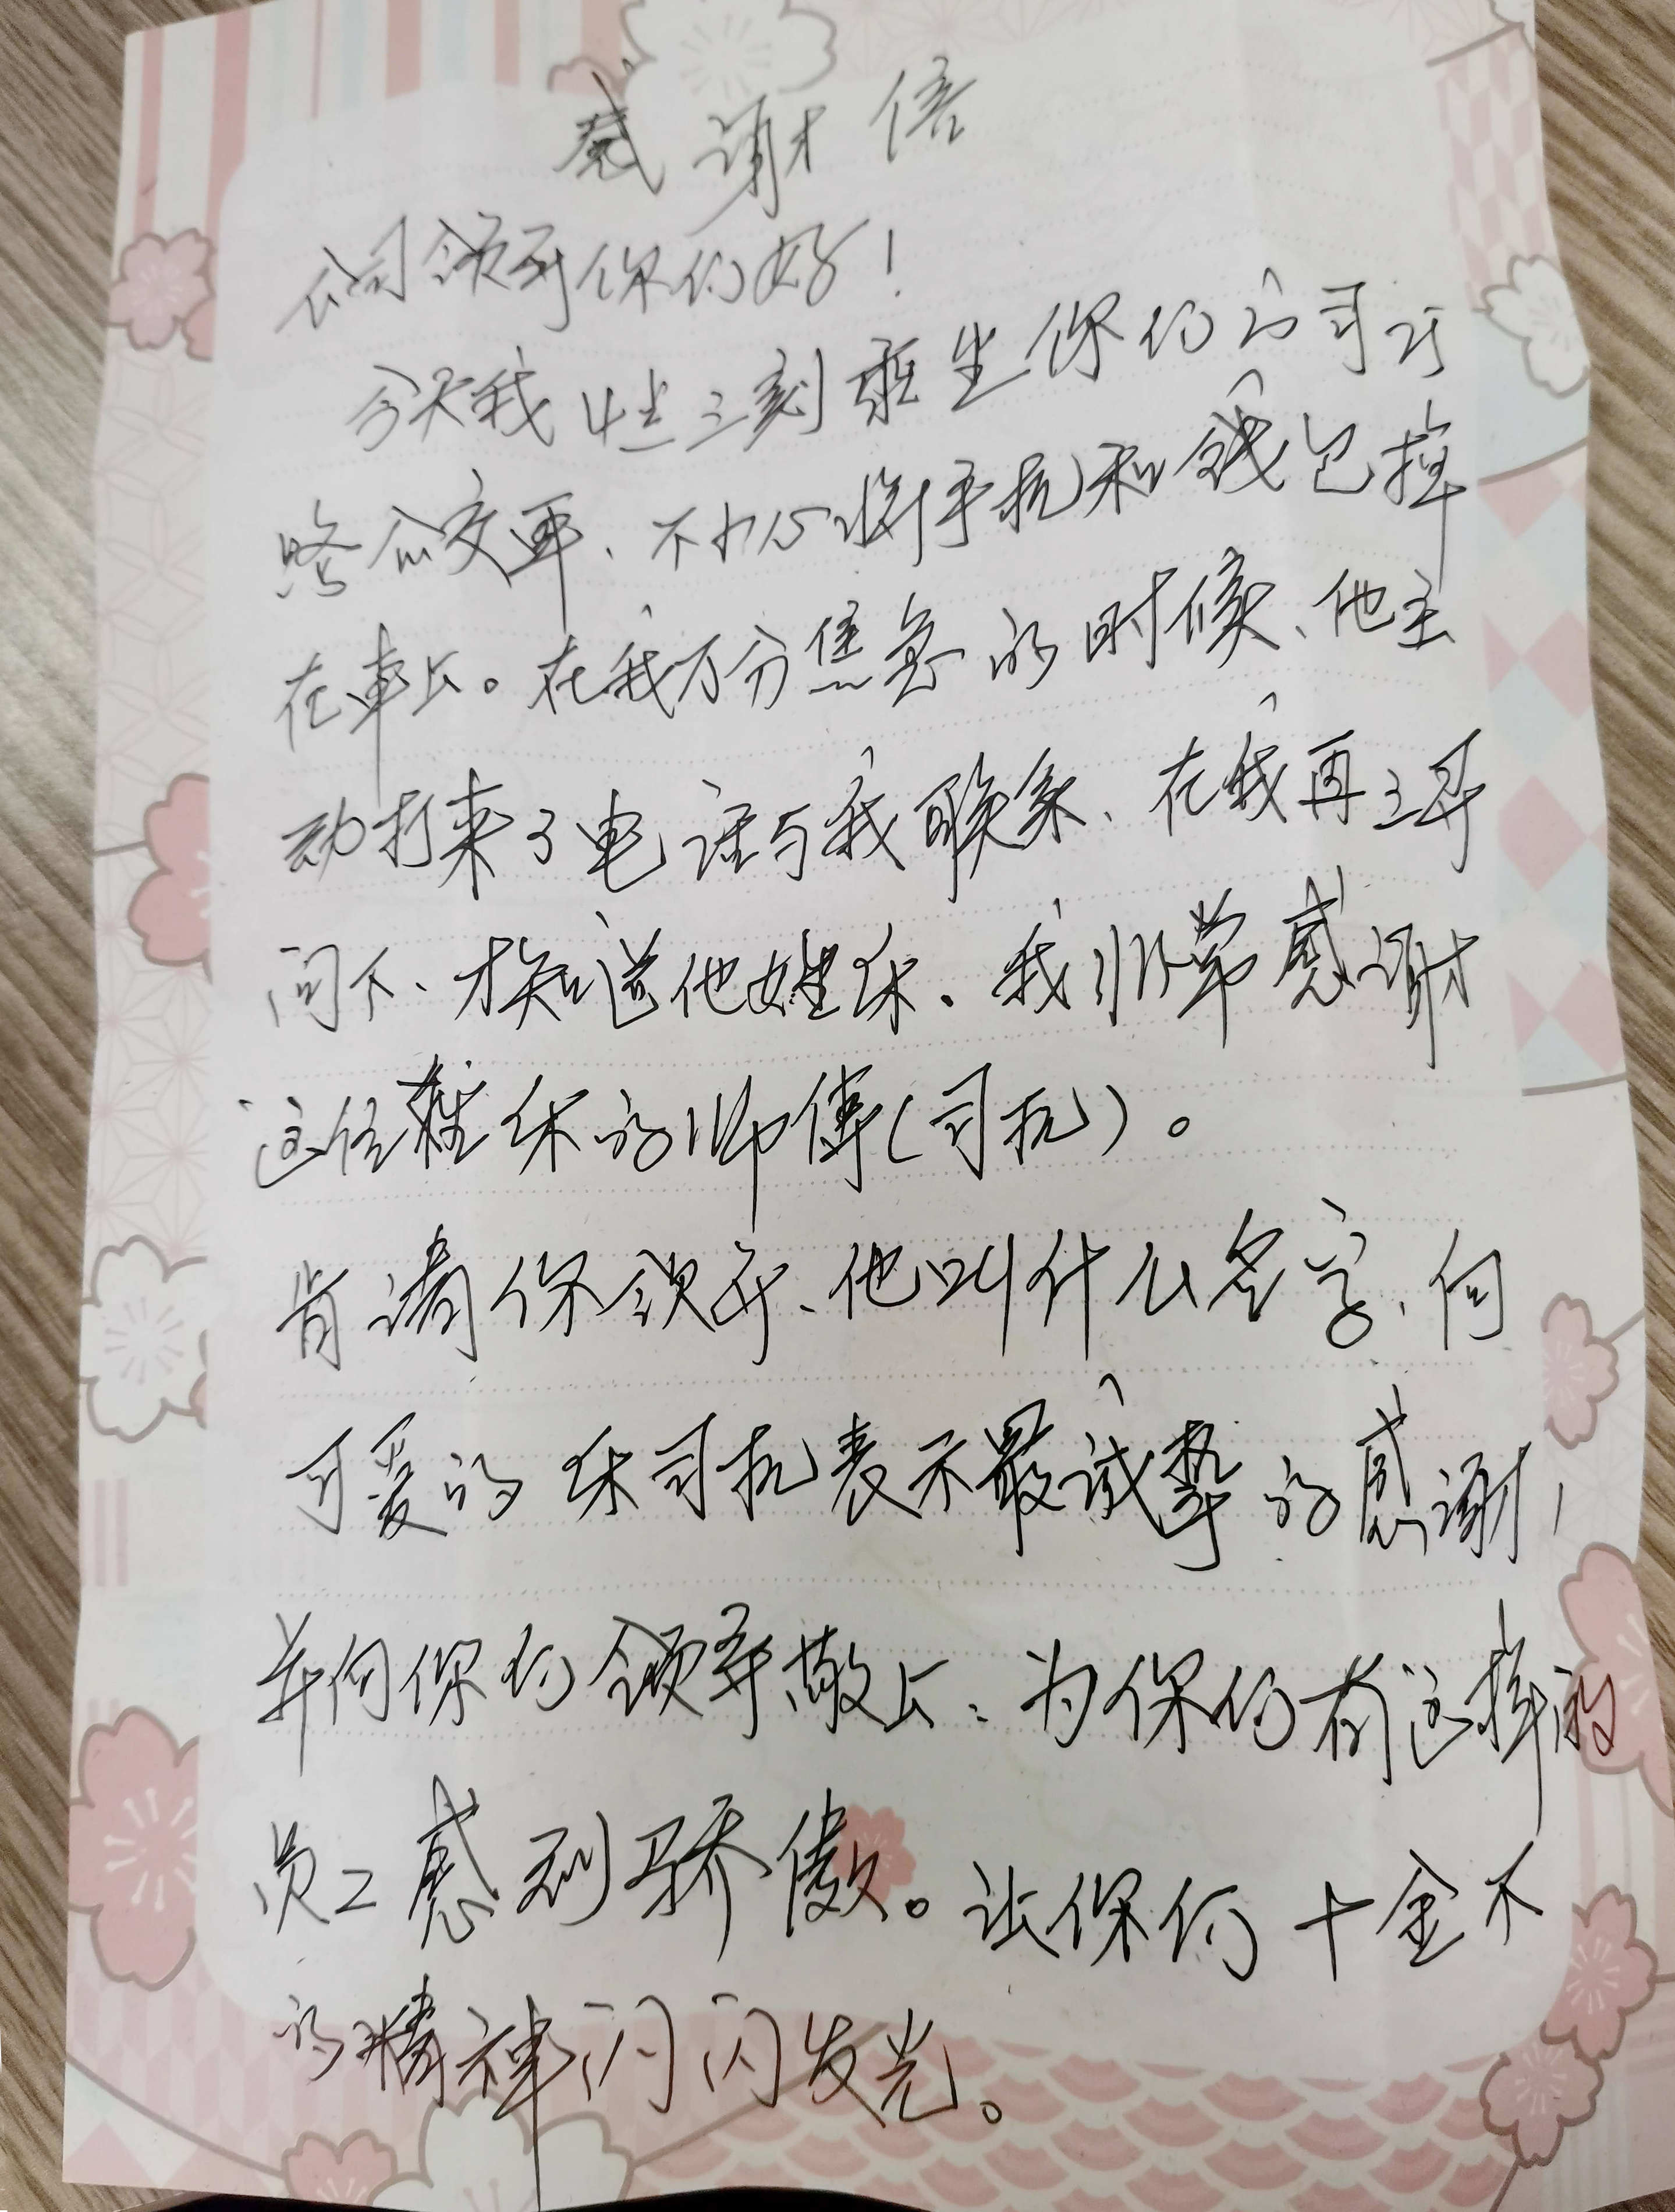 感谢信
公司领导你们好！
今天我4点三刻乘坐你们的司
路公交车、不小心将手机和钱包掉
在車上。在我万分焦急的时候、他主
动打来了电话与我联系、在我再三寻
问下、才知道他姓休。我非常感谢
这位姓休的师傅(司机)。
肯请你领导、他叫什么名字、向
可爱的休司机表示最诚挚的感谢，
并向你们领导敬上：为你们有这样的
员工感到骄傲。让你们十金不
的精神闪闪发光。